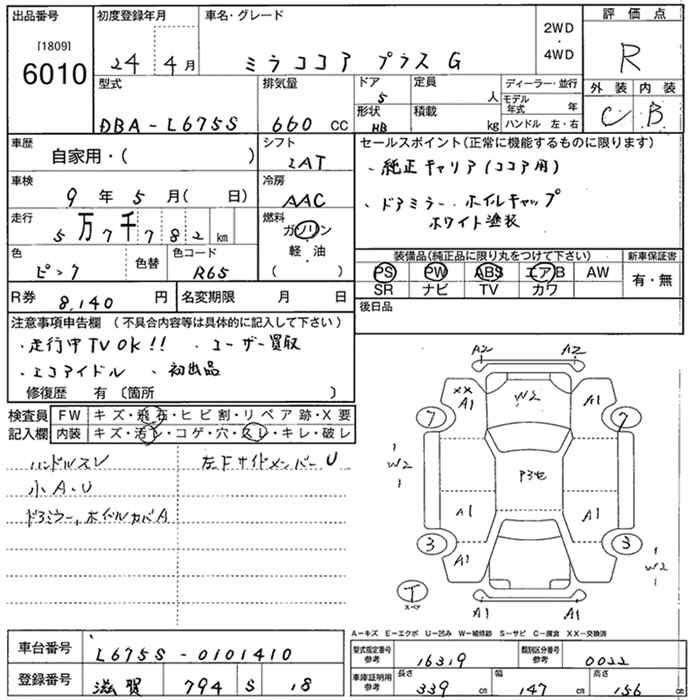 出品番号
[1809]
6010
初度登録年月
24年 4月
車名・グレード
ミラココア プラスG
2WD
・
4WD
評価点
R
外装 内装
C B
型式
DBA-L675S
排気量
660 CC
ドア
5
形状
HB
定員
人
積載
kg
ディーラー・並行
モデル年式 年
ハンドル 左・右
車歴
自家用・( )
シフト
IAT
車検
9年 5月( 日)
冷房
AAC
走行
5万7千782km
燃料
ガソリン
・
軽・油
( )
色
ピンク
色替
色コード
R65
R券 8,140 円
名変期限 月 日
セールスポイント(正常に機能するものに限ります)
・純正キャリア(ココア用)
・ドアミラー・ホイルキャップ
ホワイト塗装
装備品(純正品に限り丸をつけて下さい)
PS PW ABS エアB AW
SR ナビ TV カワ
新車保証書
有・無
後日品
注意事項申告欄 (不具合内容等は具体的に記入して下さい)
・走行中TVOK!! ・ユーザー買取
・エコアイドル ・初出品
修復歴 有 〔箇所 〕
検査員
記入欄
FW キズ・飛石・ヒビ割・リペア跡・X要
内装 キズ・汚レ・コゲ・穴・スレ・キレ・破レ
ハンドルスレ
左Fサイドメンバー U
小A・U
ドアミラー、ホイルカバA
A2 A2
XX
A1
W2
A1
7 7
W2
P3セ
A1 A1
3 3
A1
W2
T
スペア
A1 A1
A-キズ E-エクボ U-凹み W-補修跡 S-サビ C-腐食 XX-交換済
車台番号
L675S-0101410
登録番号
滋賀 794 S 18
型式指定番号
参考
16319
類別区分番号
参考
0022
車庫証明用
参考
長さ 339 cm
幅 147 cm
高さ 156 cm